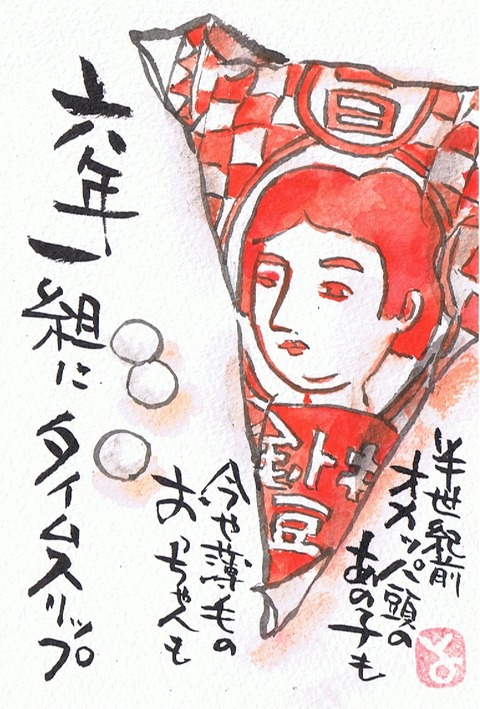 豆
半世紀前
オカッパ頭の
あの子も
今や薄毛の
おっちゃんも
六年一組に タイムスリップ